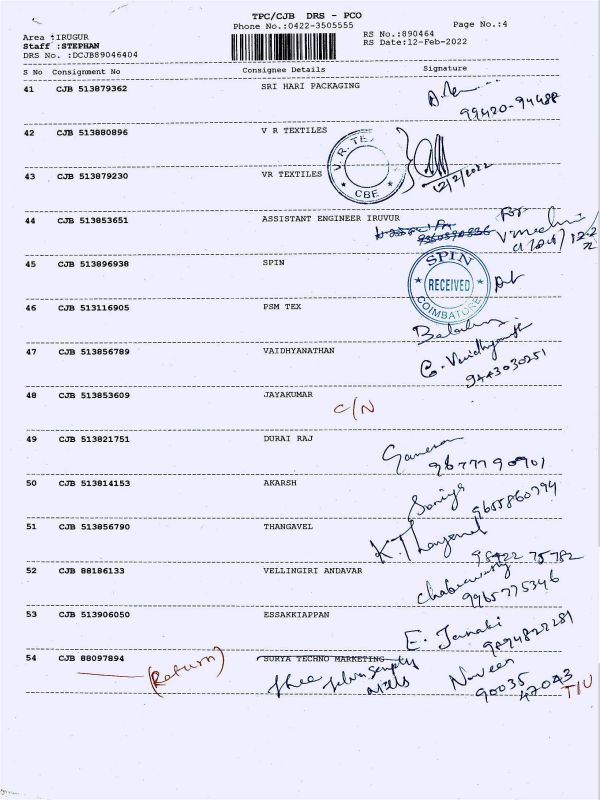 TPC/CJB DRS - PCO
Phone No.:0422-3505555 Page No.:4
Area :IRUGUR RS No.:890464
Staff :STEPHAN RS Date:12-Feb-2022
DRS No. :DCJB89046404
S No Consignment No Consignee Details Signature
41 CJB 513879362 SRI HARI PACKAGING
99420-94488
42 CJB 513880896 V R TEXTILES
V. R. TEX
CBE
43 CJB 513879230 VR TEXTILES
12/2/2022
44 CJB 513853651 ASSISTANT ENGINEER IRUVUR
For
45 CJB 513896938 SPIN
SPIN
RECEIVED
COIMBATORE
46 CJB 513116905 PSM TEX
47 CJB 513856789 VAIDHYANATHAN
9443030251
48 CJB 513853609 JAYAKUMAR
C/N
49 CJB 513821751 DURAI RAJ
Ganesan
9677790901
50 CJB 513814153 AKARSH
Soniya
9655860794
51 CJB 513856790 THANGAVEL
K. Thangavel
98422 75782
52 CJB 88186133 VELLINGIRI ANDAVAR
9965775346
53 CJB 513906050 ESSAKKIAPPAN
E. Janaki
9894827281
54 CJB 88097894 SURYA TECHNO MARKETING
(Return)
Shree
Mills
Naveen
90035
47043